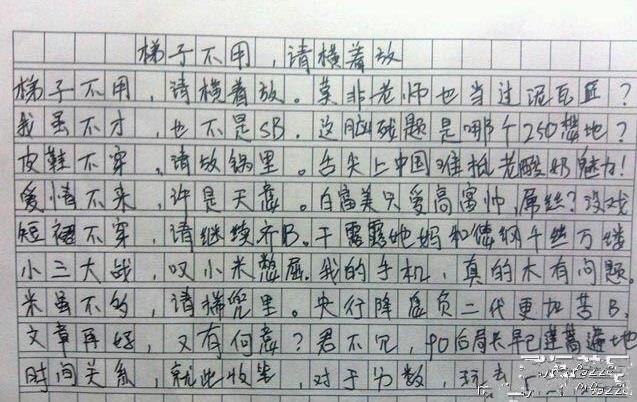 梯子不用，请横着放
梯子不用，请横着放。莫非老师也当过泥瓦匠？
我虽不才，也不是SB。这脑残题是哪个250想地？
皮鞋不穿，请放锅里。舌尖上中国难抵老酸奶魅力！
爱情不来，许是天意。白富美只爱高富帅，屌丝？没戏
短裙不穿，请继续齐B。干露露她妈和德纲千丝万缕
小三大战，叹小米憋屈。我的手机，真的木有问题。
米虽不多，请揣兜里。央行降息负二代更加苦B，
文章再好，又有何意？君不见，90后局长早已遍地
时间关系，就此收笔，对于分数，